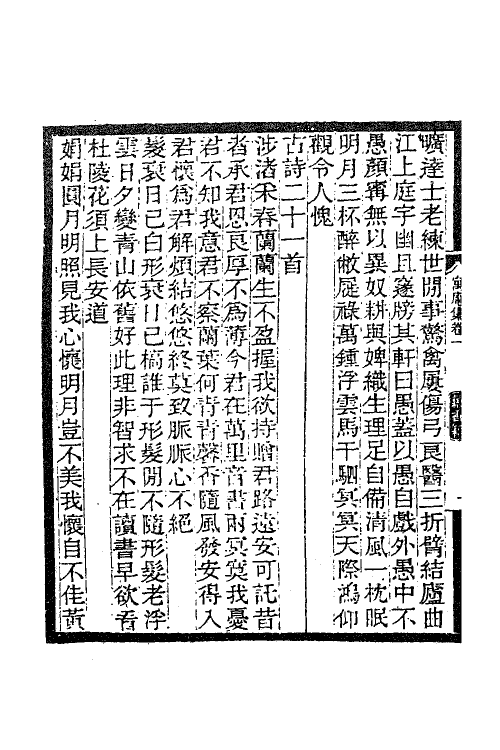 曠達士老練世閒事驚禽屢傷弓良醫三折臂結廬曲
江上庭宇幽且邃牓其軒曰愚蓋以愚自戲外愚中不
愚顏甯無以異奴耕與婢織生理足自備清風一枕眠
明月三杯醉敝屣祿萬鍾浮雲馬千駟冥冥天際鴻仰
觀令人愧
古詩二十一首
涉渚采春蘭蘭生不盈握我欲持贈君路遠安可託昔
者承君恩良厚不為薄今君在萬里音書兩冥寞我憂
君不知我意君不察蘭葉何青青馨香隨風發安得入
君懷為君解煩結悠悠終莫致脈脈心不絕
髮衰日已白形衰日已槁誰于形髮閒不隨形髮老浮
雲日夕變青山依舊好此理非智求不在讀書早欲看
杜陵花須上長安道
娟娟圓月明照見我心懷明月豈不美我懷自不佳黃